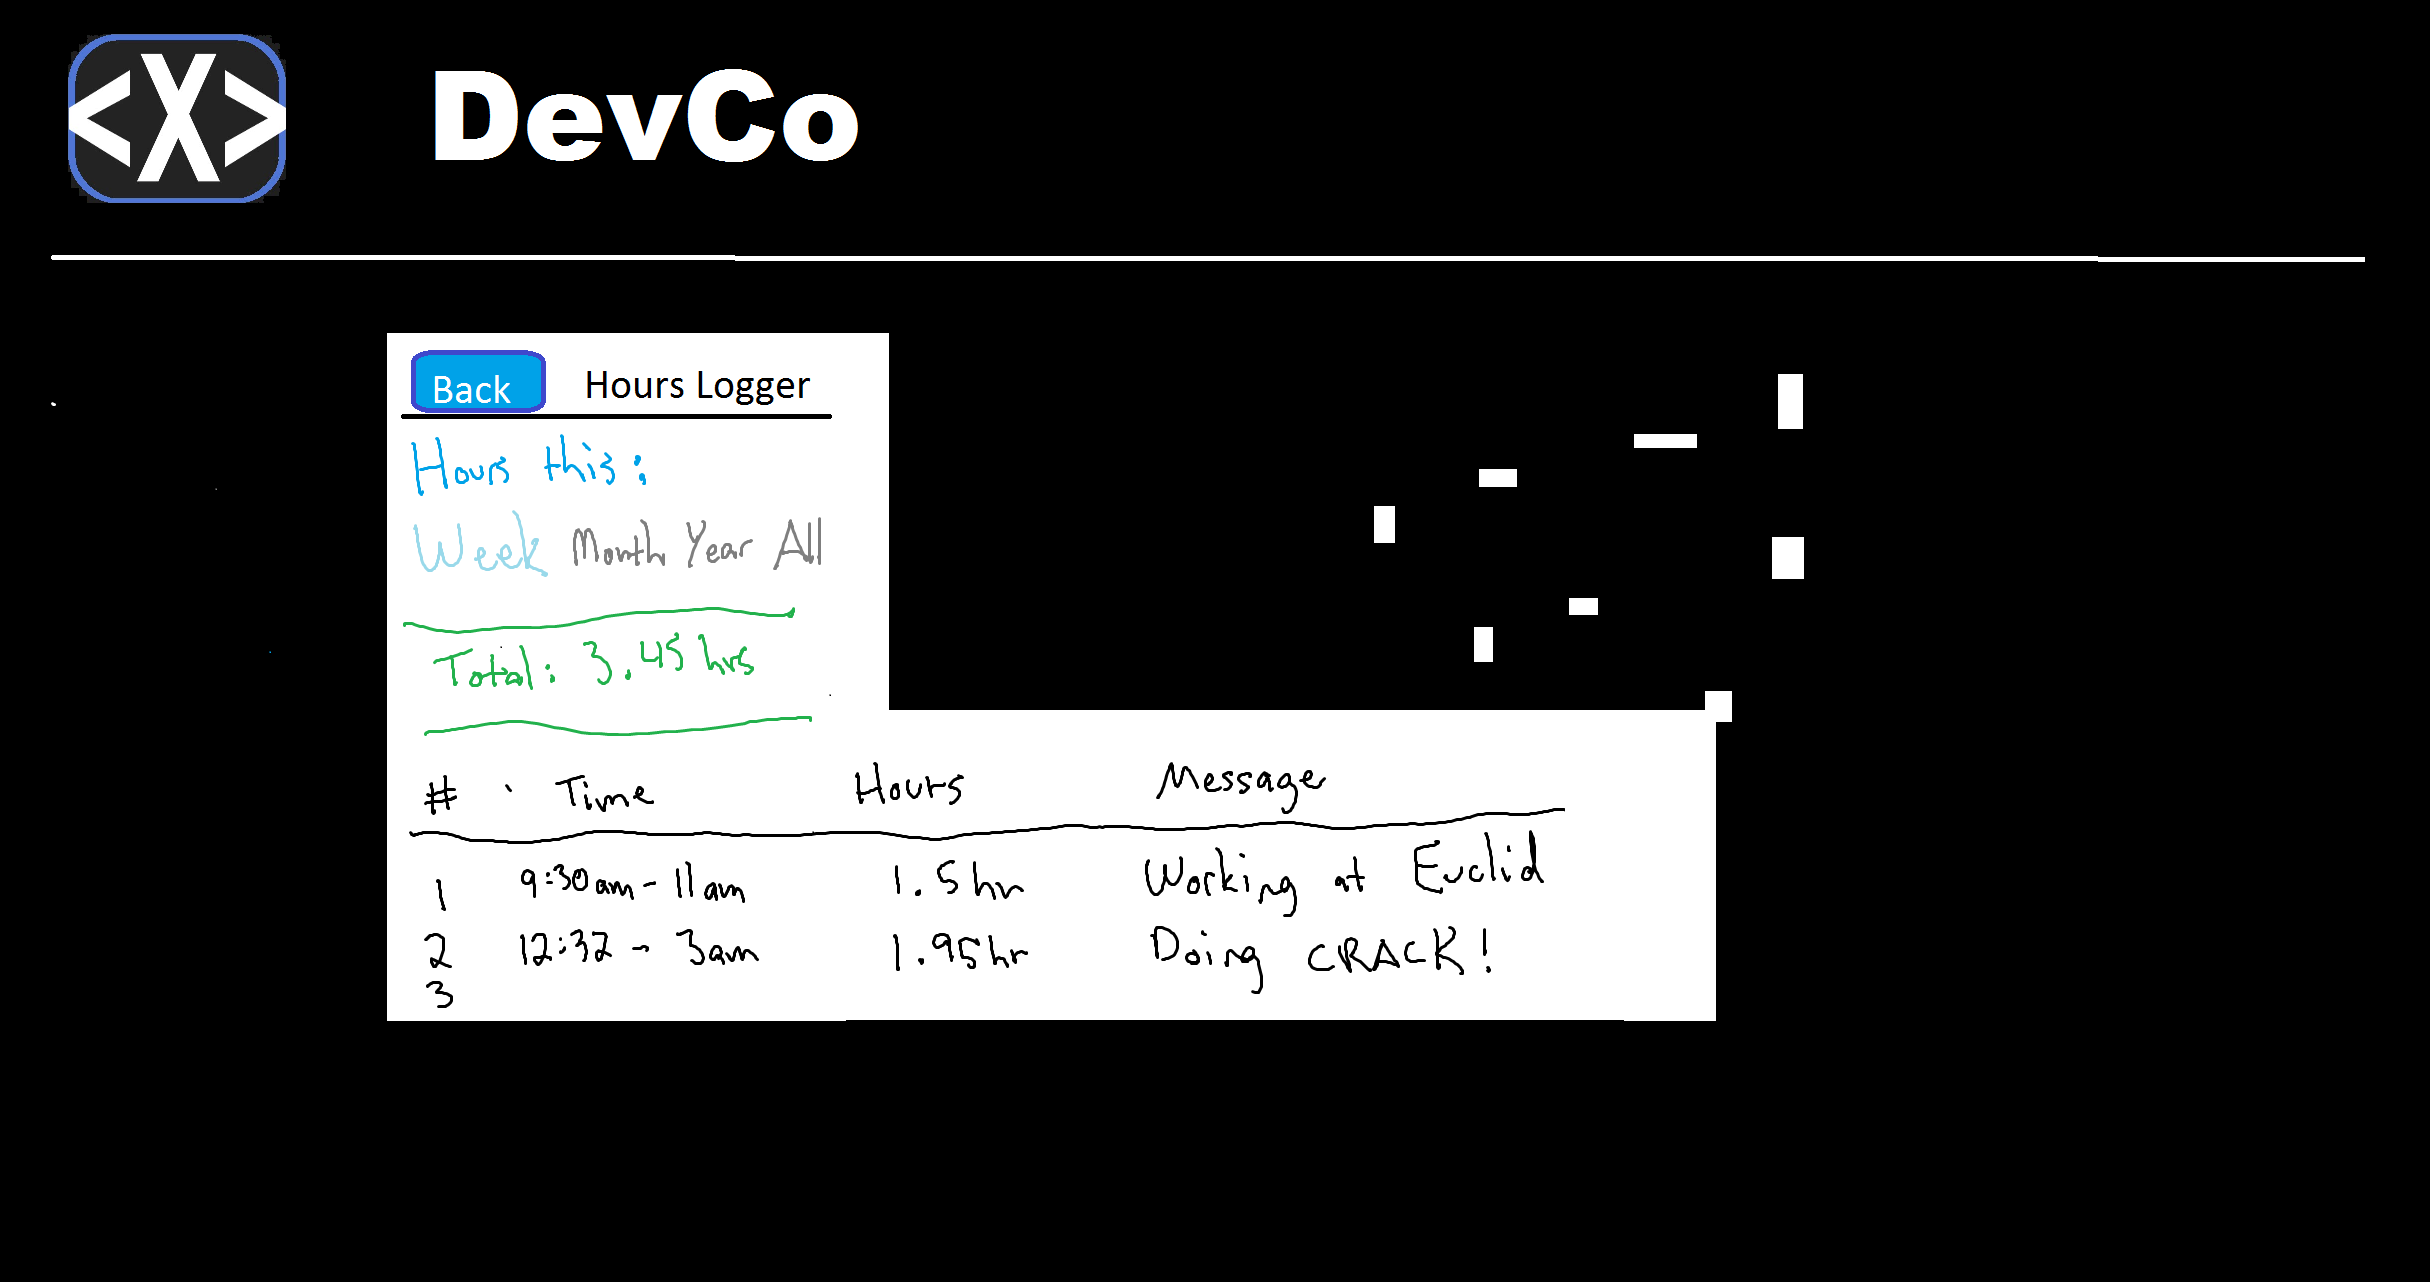 <X> DevCo
Back Hours Logger
Hours this:
Week Month Year All
Total: 3.45 hrs
# Time Hours Message
1 9:30am - 11am 1.5hr Working at Euclid
2 12:32 - 3am 1.95hr Doing CRACK!
3